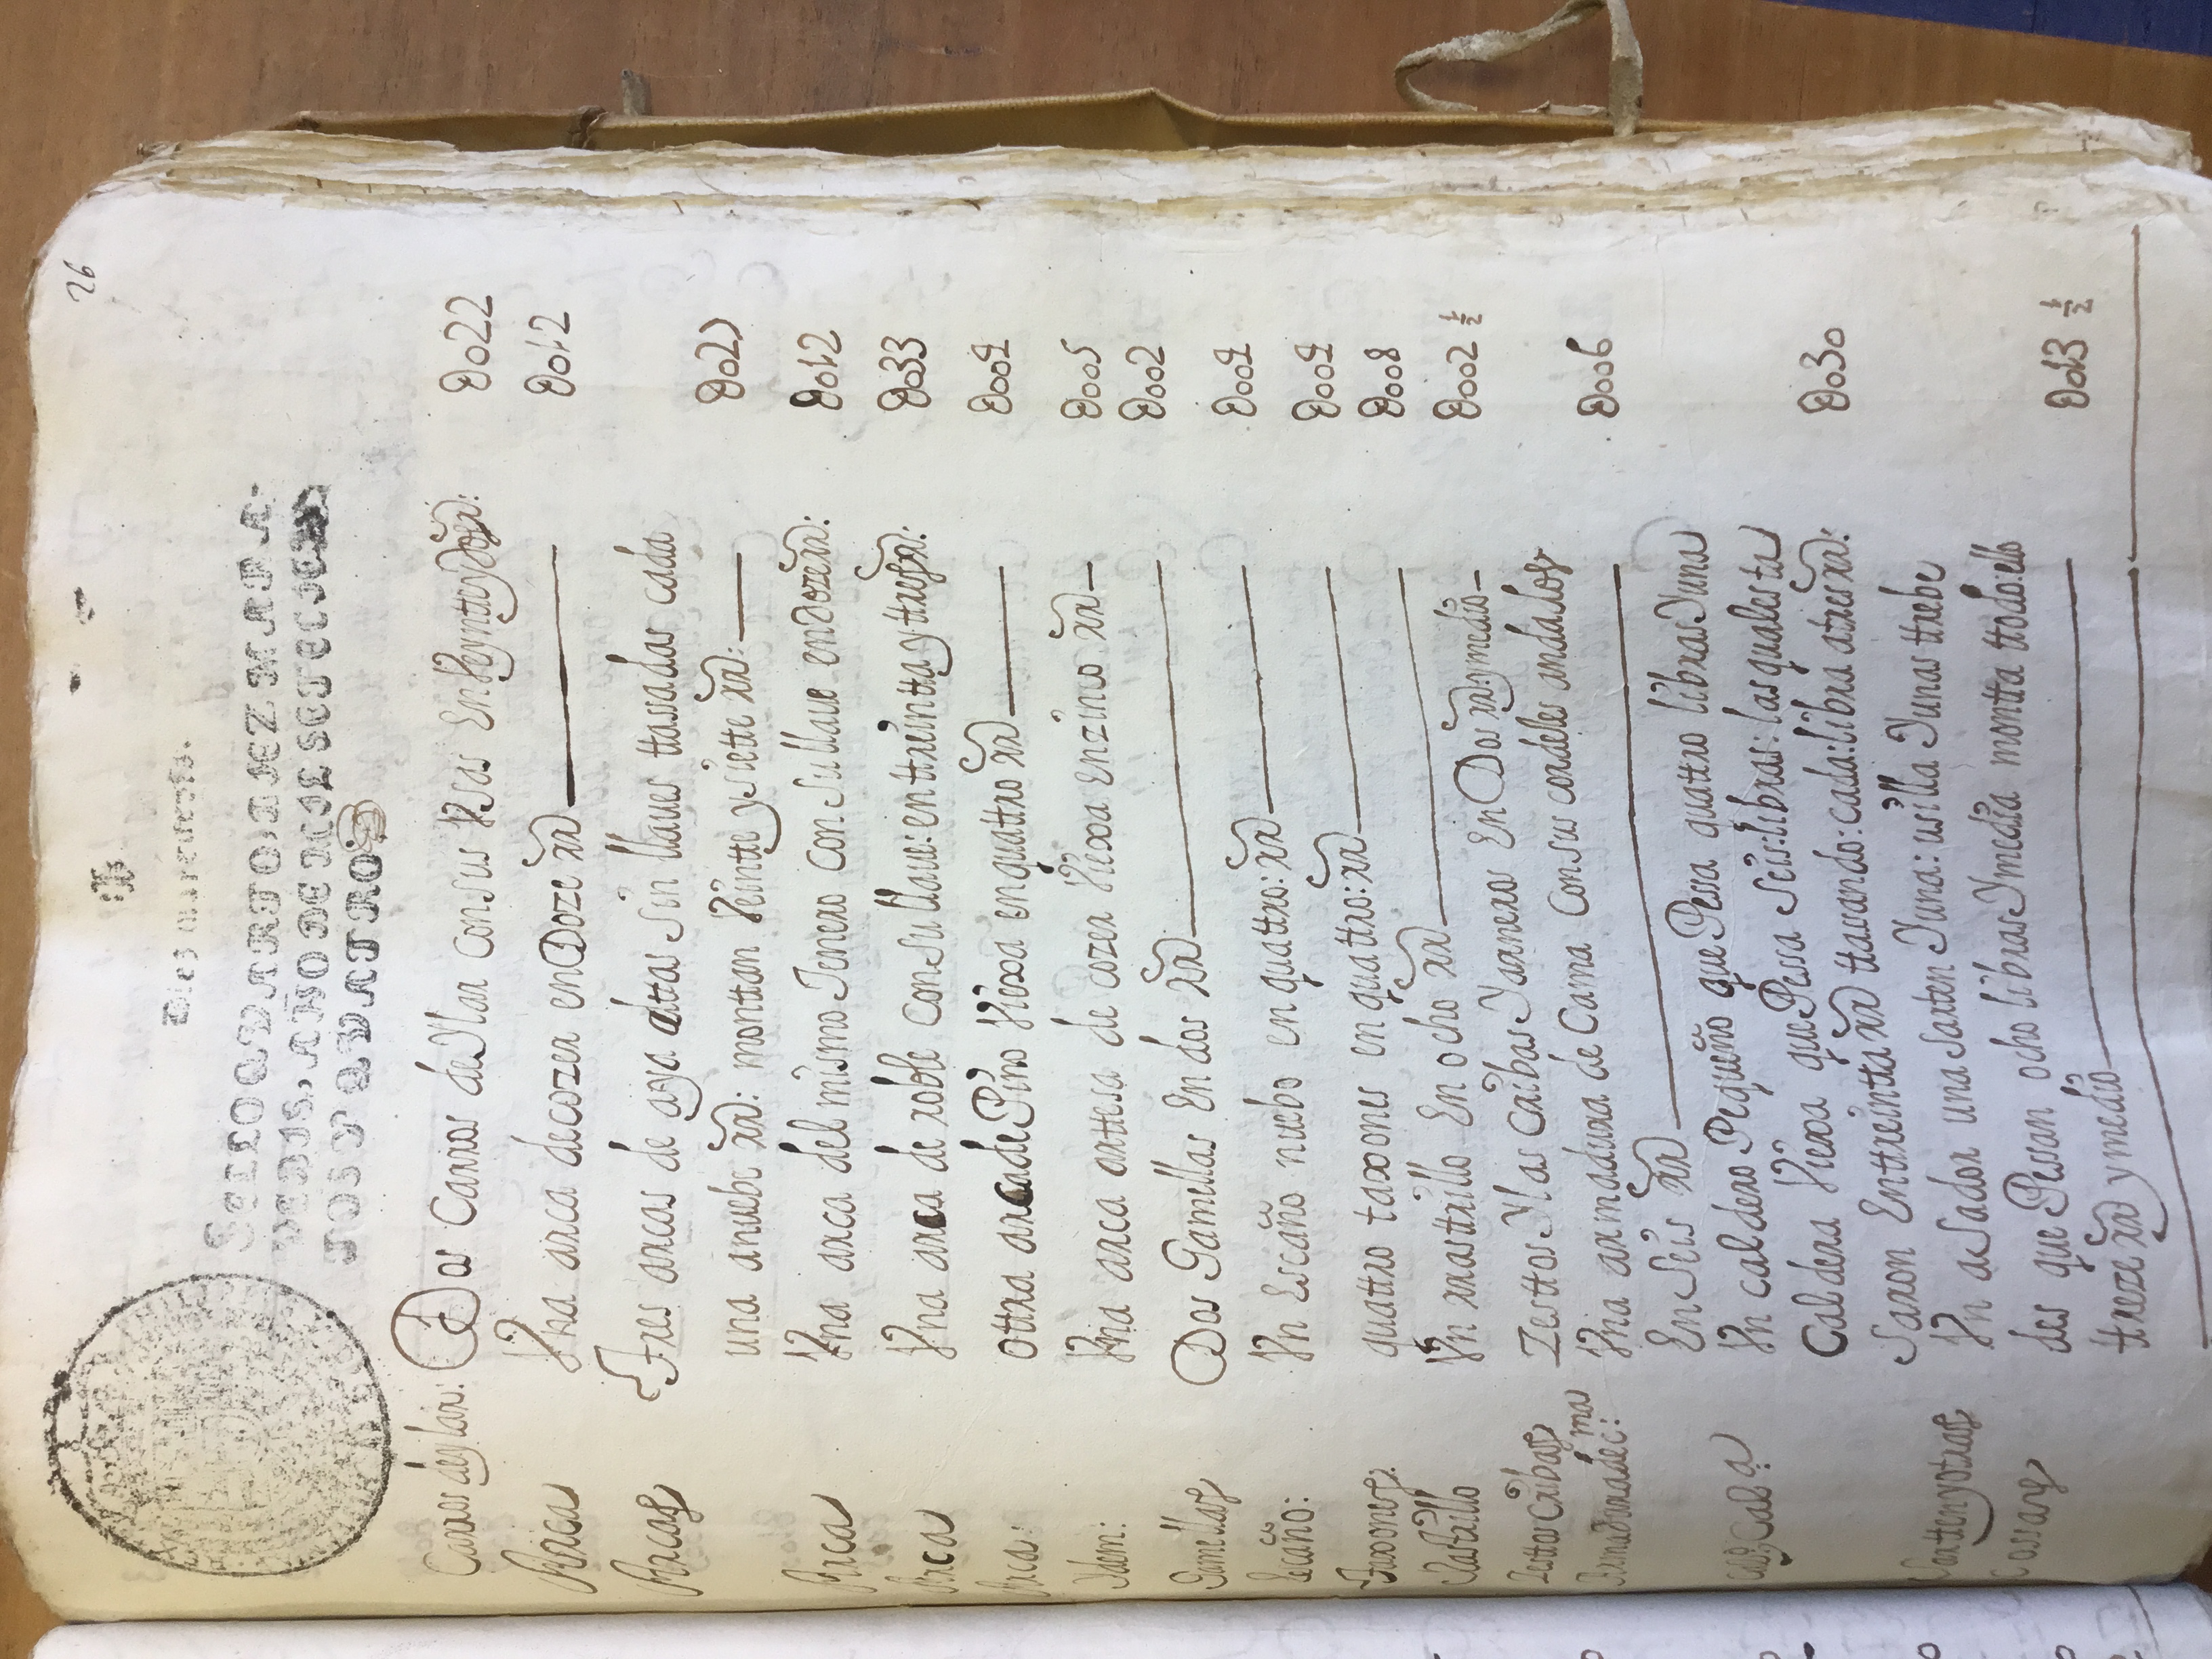 26
Diez maravedis.
SELLO QVARTO, DIEZ MARA-
VEDIS, AÑO DE MIL SETECIEN
TOS Y QVATRO.
Carros de ylar: Dos Carros de Ylar con sus Usos En Veyntte y Dos Rs: D022
Arca Vna arca de cozer en Doze Rs D012
Arcas Tres arcas de aya altas Sin llaues tasadas cada
una a nuebe Rs: monttan Veintte y siette Rs: D027
Arca Vna arca del mismo Jenero Con Su llaue en Doze Rs: D012
Arca Vna arca de roble Con Su llaue: en treintta y tres Rs: D033
Arca: Ottra arca de Pino Viexa en quattro Rs D004
Idem: Vna arca arttesa de cozer Viexa en zinco Rs D005
Gamellas Dos Gamellas En dos Rs D002
Escaño: Vn Escaño nuebo en quattro: Rs D004
Taxones: quattro taxones en quattro: Rs D004
Rastrillo Vn rrastrillo En ocho Rs D008
Zesttos Cribas Zesttos Y las Cribas Y arnero En Dos Rs: y medio D002 ½
Armadura de C:ma Vna armadura de Cama Con sus cordeles andalos
En Seis Rs D006
Vn caldero Pequeño que Pesa quattro libras Y una
Caldera Viexa que Pesa Seis: libras: las quales ta
Saron En ttreintta Rs ttasando: cada: libra a tres Rs: D030
Sartten y otras Vn asador una Sarten Y una: usilla Y unas ttrebe
Cossas des que Pessan ocho libras Y media montta ttodo: ello
tteze Rs y medio D013 ½